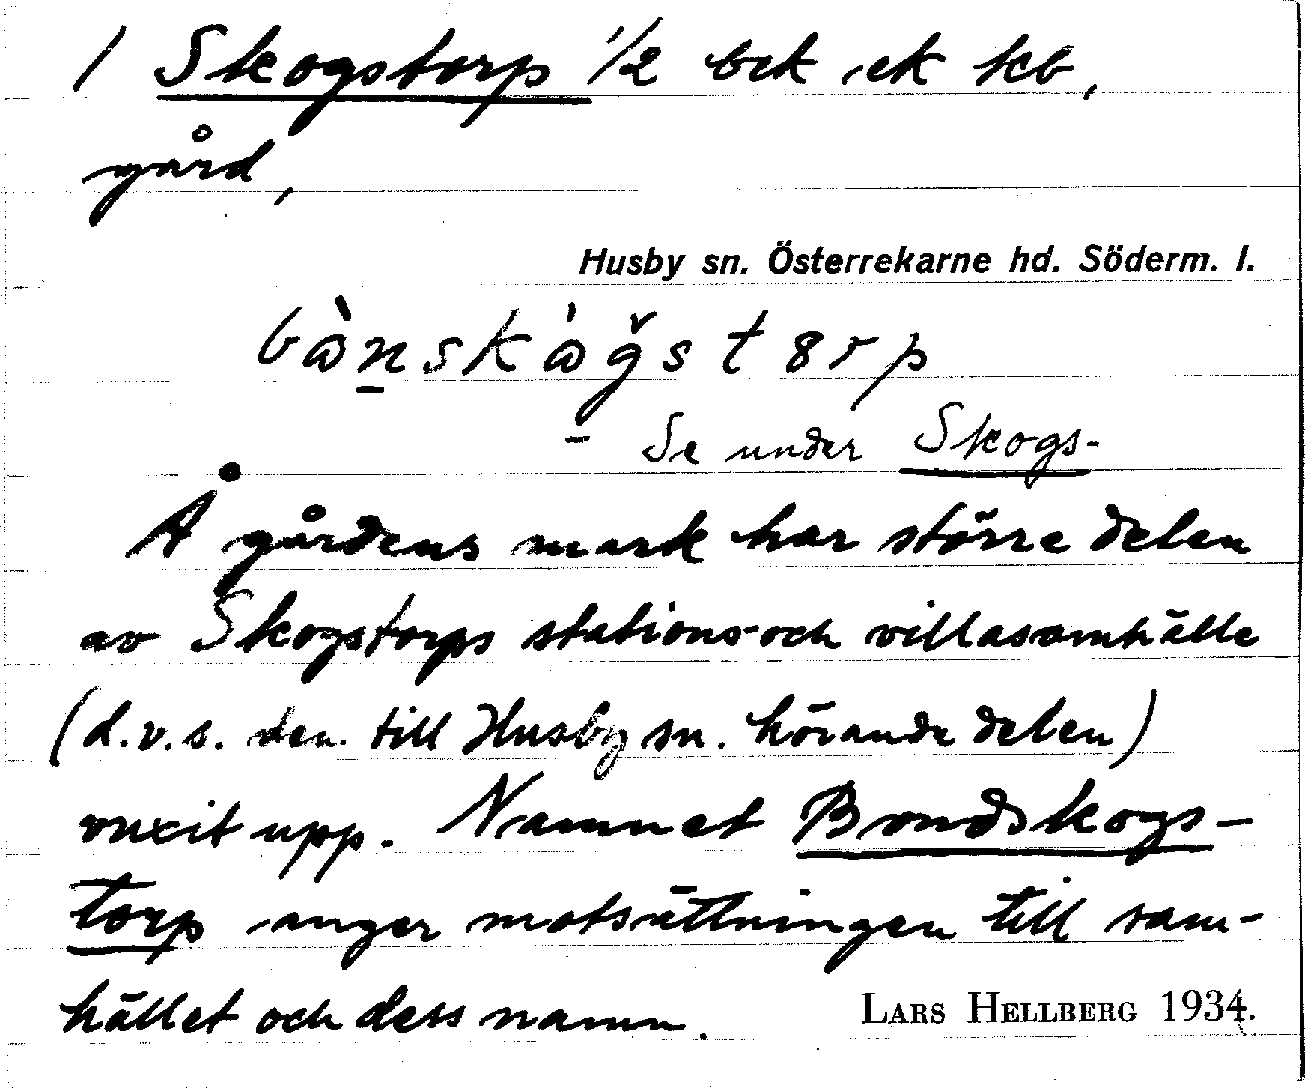 / Skogstorp 1/2 bek, ek kb,
gård,
Husby sn. Österrekarne hd. Söderm. l.
bànskàgstorp
- Se under Skogs-
Å gårdens mark har större delen
av Skogstorps stations- och villasamhälle
(d.v.s. den till Husby sn. hörande delen)
vuxit upp. Namnet Bondskogs-
torp anger motsättningen till sam-
hället och dess namn.
LARS HELLBERG 1934.